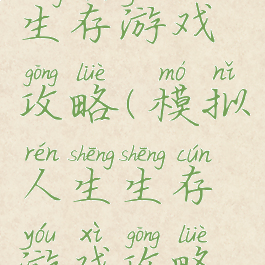 生存游戏
gōng lüè mó nǐ
攻略(模拟
rén shēng shēng cún
人生生存
yóu xì gōng lüè
游戏攻略